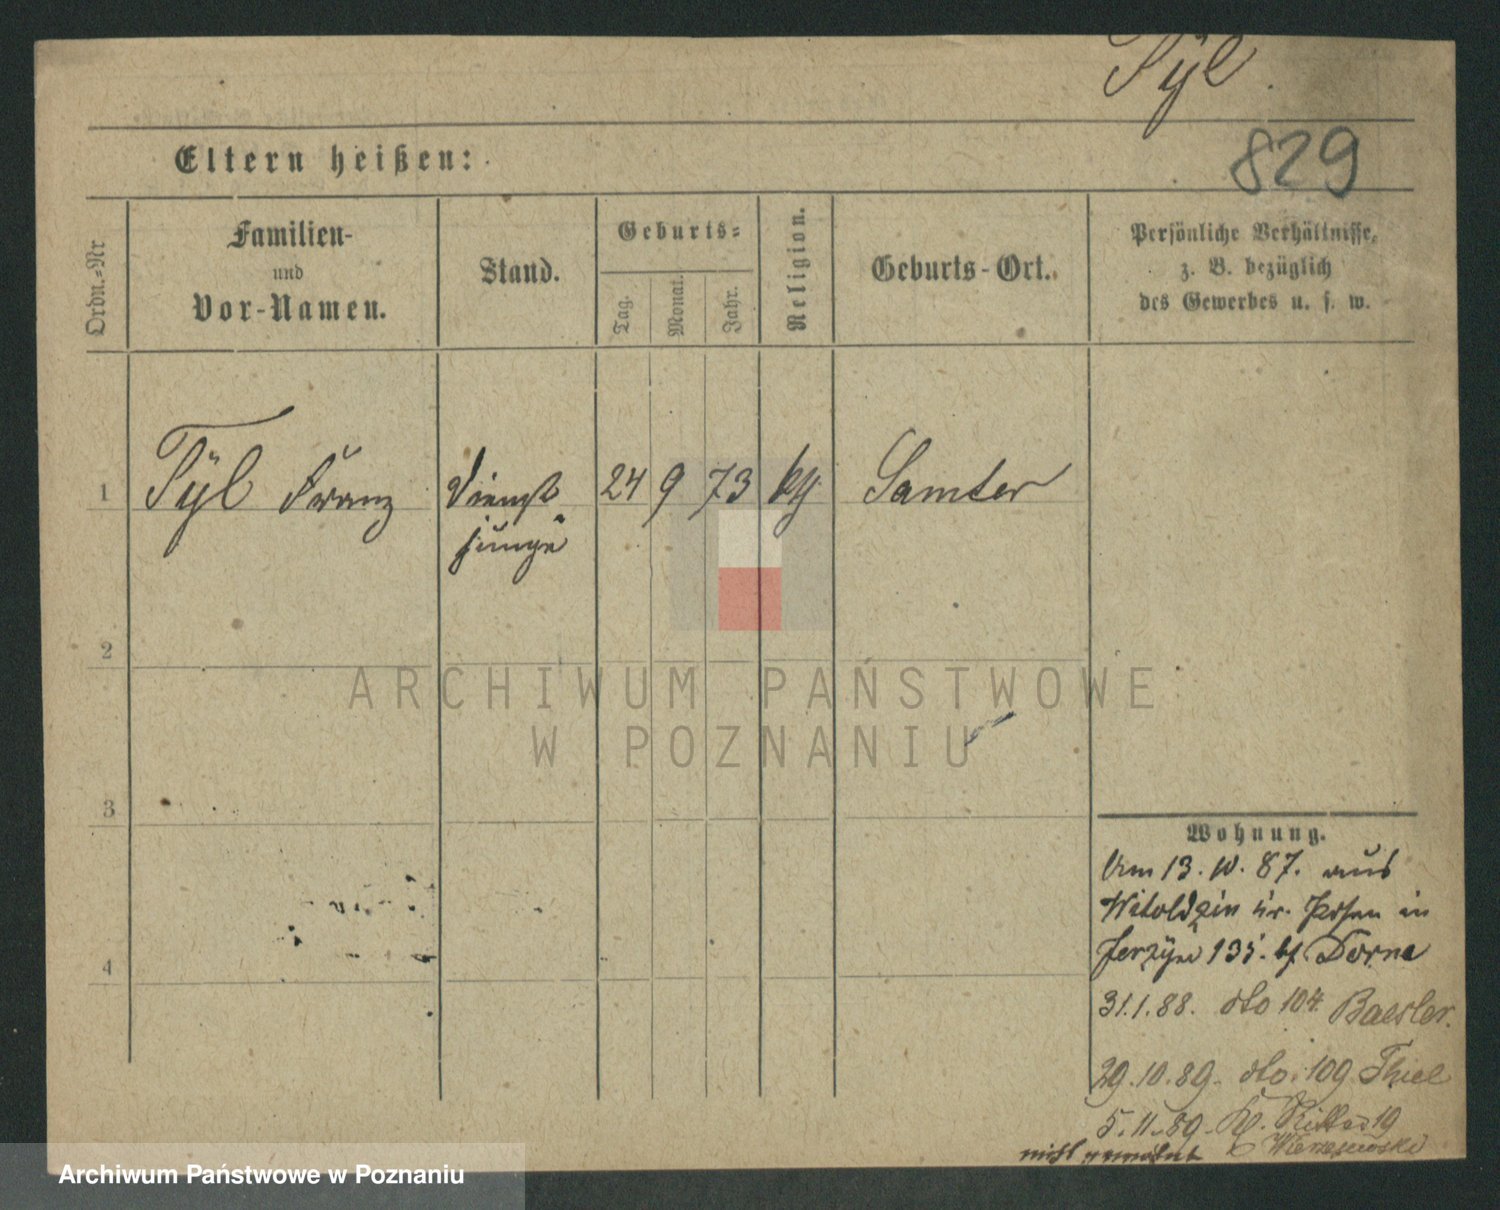 Tyl.
829
Eltern heißen:
Ordn.-Nr
Familien-
und
Vor-Namen.
Stand.
Geburts-
Tag.
Monat.
Jahr.
Religion.
Geburts-Ort.
Persönliche Verhältnisse,
z. B. bezüglich
des Gewerbes u. s. w.
1 Tÿl Franz Dienst 24 9 73 kg Samter
junge
2
3
4
Wohnung.
Am 13. 10. 87. aus
Kr. Posen in
Jerzyce 135. bf Dorna
31.1.88. dto 104 Baesler.
29.10.89. dto. 109 Thiel
5.11.89. Kl. Ritter 19
nicht gemeldet
ARCHIWUM PAŃSTWOWE
W POZNANIU
Archiwum Państwowe w Poznaniu